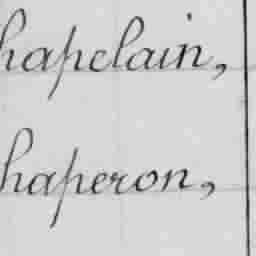 hapelain,
haperon,